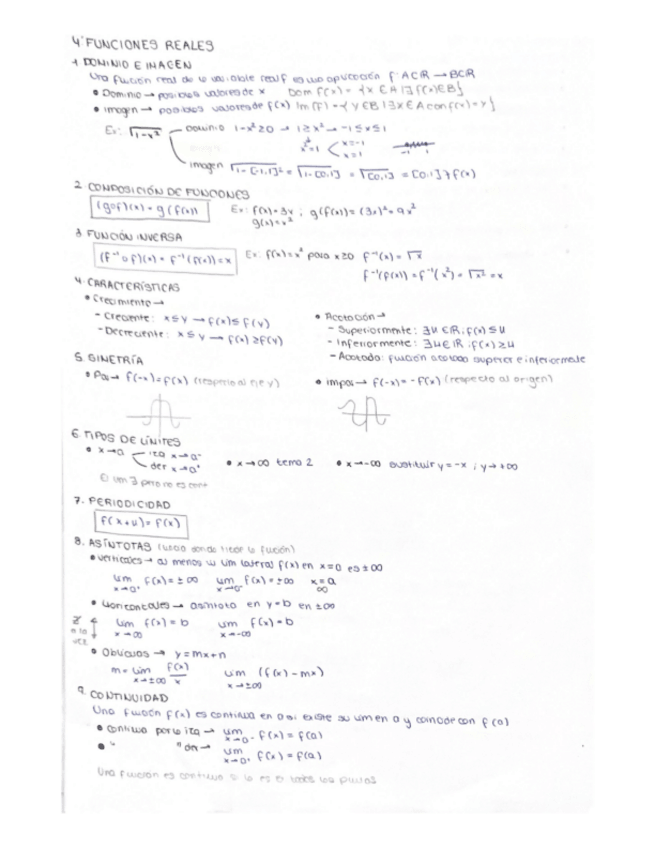 4. FUNCIONES REALES
1. DOMINIO E IMAGEN
Una función real de la variable real f es una aplicación f: A⊂ℝ → B⊂ℝ
• Dominio → posibles valores de x Dom f(x) = {x ∈ A | ∃ f(x) ∈ B}
• Imagen → posibles valores de f(x) Im(f) = {y ∈ B | ∃ x ∈ A con f(x) = y}
Ex: √(1-x²) Dominio 1-x² ≥ 0 → 1 ≥ x² → -1 ≤ x ≤ 1
x² = 1 x = -1
x = 1
-1 1
imagen √(1-[-1,1]²) = √(1-[0,1]) = √([0,1]) = [0,1] ∀ f(x)
2. COMPOSICIÓN DE FUNCIONES
(g∘f)(x) = g(f(x)) Ex: f(x) = 3x ; g(f(x)) = (3x)² = 9x²
g(x) = x²
3. FUNCIÓN INVERSA
(f⁻¹∘f)(x) = f⁻¹(f(x)) = x Ex: f(x) = x² para x ≥ 0 f⁻¹(x) = √x
f⁻¹(f(x)) = f⁻¹(x²) = √x² = x
4. CARACTERÍSTICAS
• Crecimiento →
- Creciente: x ≤ y → f(x) ≤ f(y)
- Decreciente: x ≤ y → f(x) ≥ f(y)
• Acotación →
- Superiormente: ∃ u ∈ ℝ ; f(x) ≤ u
- Inferiormente: ∃ u ∈ ℝ ; f(x) ≥ u
- Acotada: función acotada super e inferiormente
5. SIMETRÍA
• Par → f(-x) = f(x) (respecto al eje y) • impar → f(-x) = -f(x) (respecto al origen)
6. TIPOS DE LÍMITES
• x→a izq x→a⁻
der x→a⁺
• x→∞ tema 2 • x→-∞ sustituir y = -x ; y→+∞
El lim ∃ pero no es cont
7. PERIODICIDAD
f(x+u) = f(x)
8. ASÍNTOTAS (hacia donde tiende la función)
• Verticales → al menos un lim lateral f(x) en x=a es ±∞
lim x→a⁺ f(x) = ±∞ lim x→a⁻ f(x) = ±∞ x = a
• Horizontales → asíntota en y=b en ±∞
lim x→∞ f(x) = b lim x→-∞ f(x) = b
a la vez
• Oblicuas → y = mx+n
m = lim x→±∞ f(x)/x lim x→±∞ (f(x) - mx)
9. CONTINUIDAD
Una función f(x) es continua en a si existe su lim en a y coincide con f(a)
• continua por la izq → lim x→a⁻ f(x) = f(a)
• " " der → lim x→a⁺ f(x) = f(a)
Una función es continua si lo es en todos los puntos